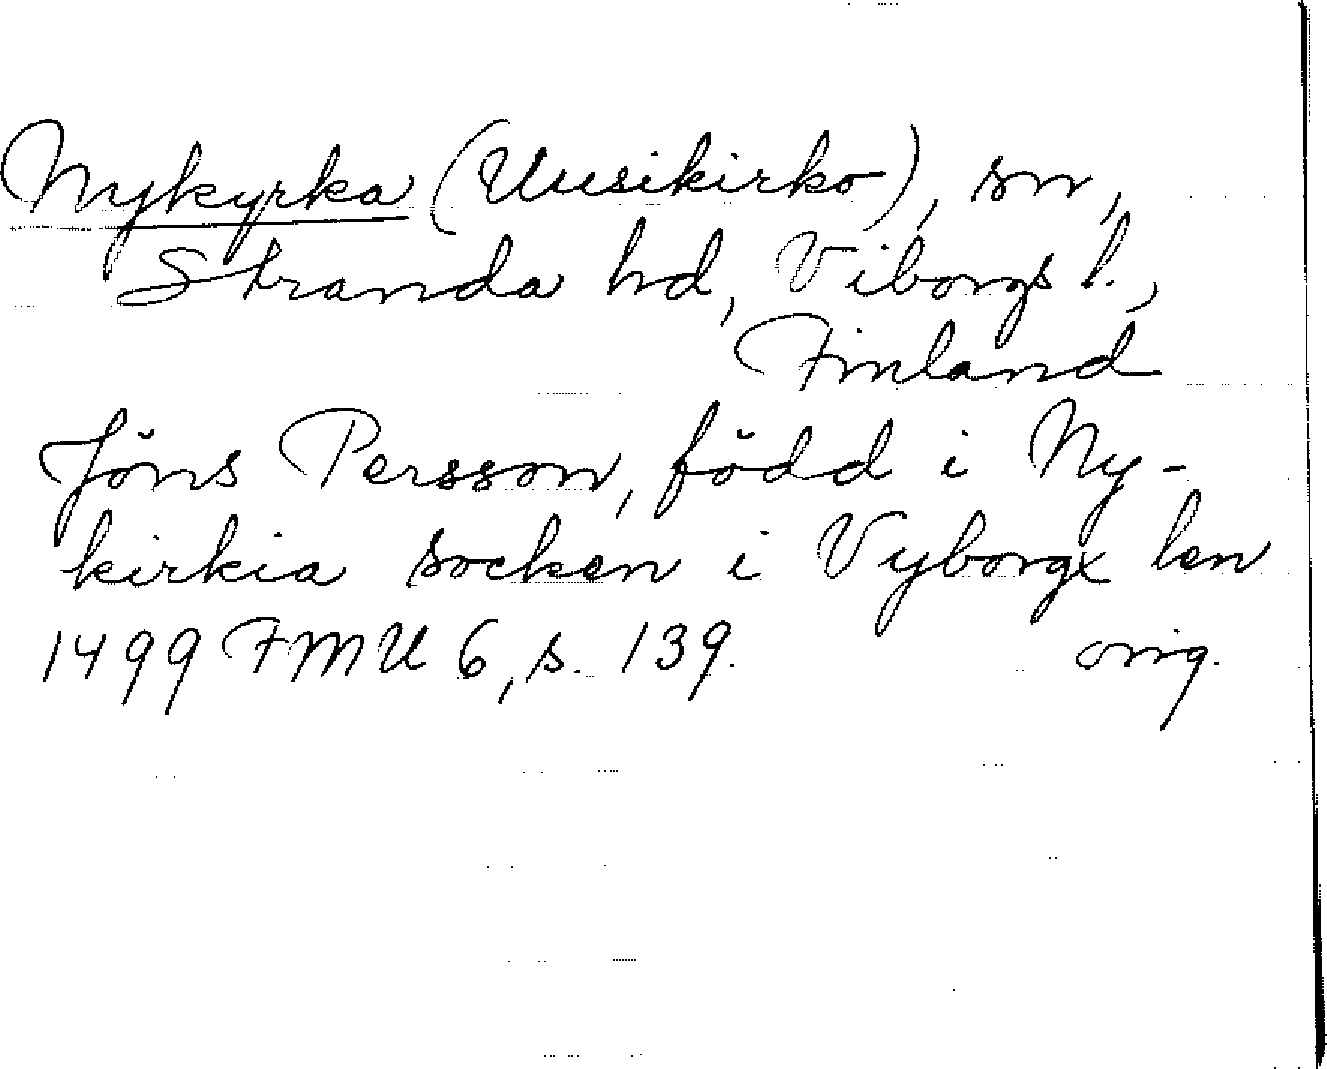 Nykyrka (Uusikirko), sn,
Stranda hd, Viborgs l.,
Finland
Jöns Persson, född i Ny-
kirkia socken i Vyborgx len
1499 FMU 6, s. 139. orig.